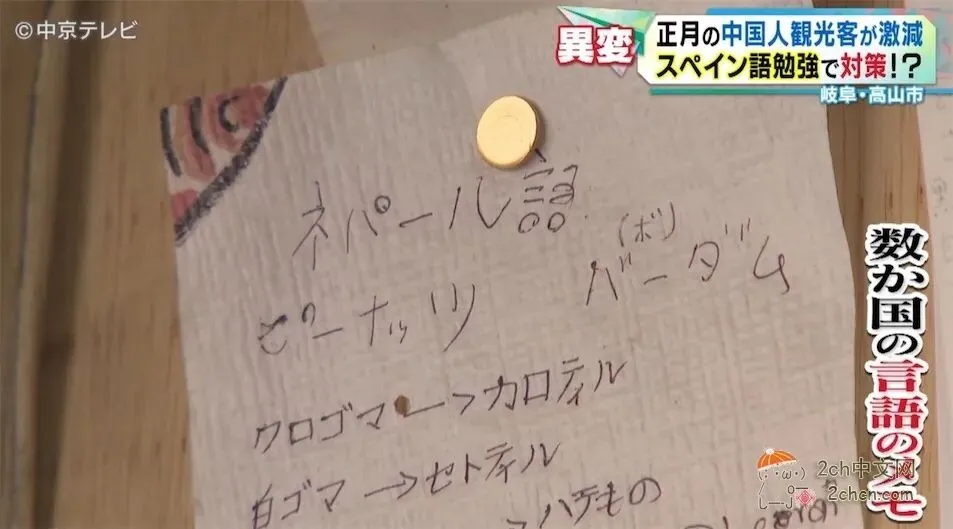 ©中京テレビ
異変
正月の中国人観光客が激減
スペイン語勉強で対策!?
岐阜・高山市
ネパール語
(ボリ)
ピーナッツ バーダム
クロゴマ→カロティル
白ゴマ→セトティル
数か国の言語のメモ
2ch中文网
2chcn.com